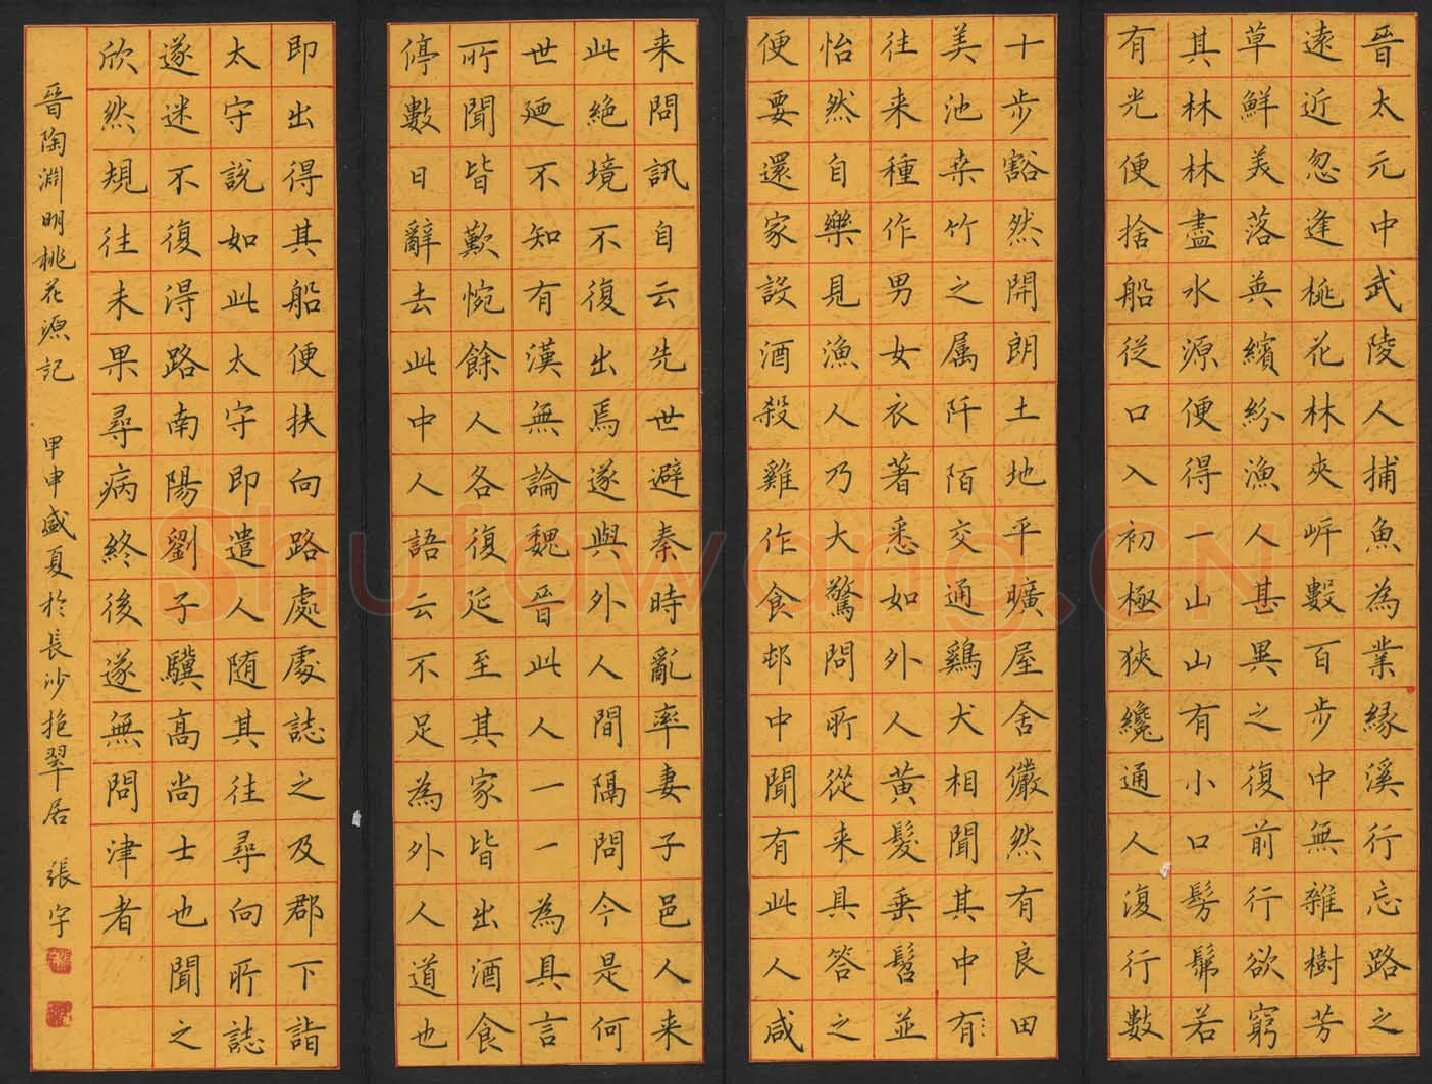 晉太元中武陵人捕魚為業緣溪行忘路之
遠近忽逢桃花林夾岸數百步中無雜樹芳
草鮮美落英繽紛漁人甚異之復前行欲窮
其林林盡水源便得一山山有小口髣髴若
有光便捨船從口入初極狹纔通人復行數
十步豁然開朗土地平曠屋舍儼然有良田
美池桒竹之属阡陌交通鷄犬相聞其中有
往来種作男女衣著悉如外人黃髮垂髫並
怡然自樂見漁人乃大驚問所從来具答之
便要還家設酒殺雞作食邨中聞有此人咸
来問訊自云先世避秦時亂率妻子邑人来
此絕境不復出焉遂與外人間隔問今是何
世廼不知有漢無論魏晉此人一一為具言
所聞皆歎惋餘人各復延至其家皆出酒食
停數日辭去此中人語云不足為外人道也
即出得其船便扶向路處處誌之及郡下詣
太守說如此太守即遣人随其往尋向所誌
遂迷不復得路南陽劉子驥高尚士也聞之
欣然規往未果尋病終後遂無問津者
晉陶淵明桃花源記 甲申盛夏於長沙挹翠居 張宇
Shufawang.CN